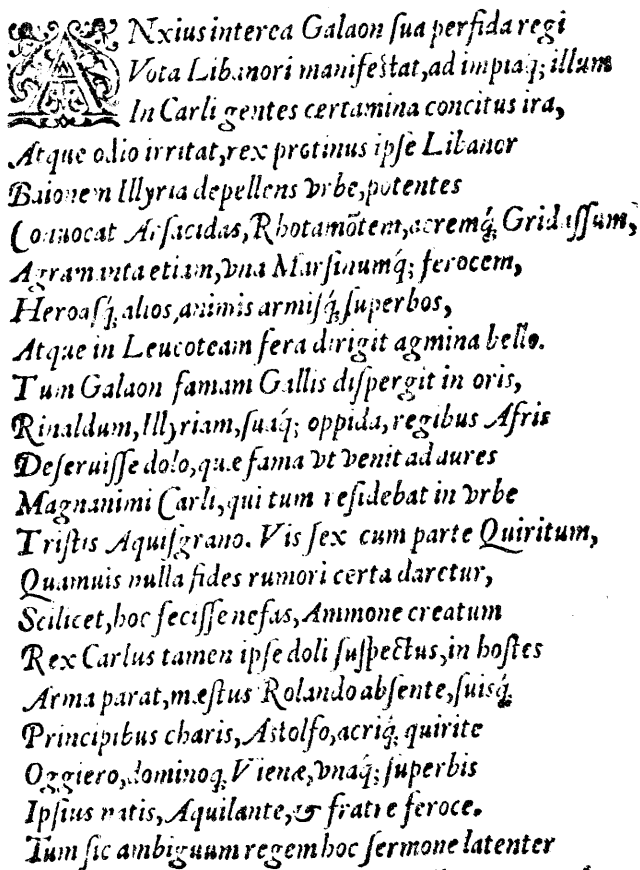 ANxius interea Galaon ſua perfida regi
Vota Libanori manifeſtat, ad impiaq; illum
In Carli gentes certamina concitus ira,
Atque odio irritat, rex protinus ipſe Libanor
Baionem Illyria depellens vrbe, potentes
Conuocat Arſacidas, Rhotamõtem, acremq́; Gridaſſum,
Agramanta etiam, vna Marſinumq́; ferocem,
Heroaſq́; alios, animis armiſq́; ſuperbos,
Atque in Leucoteam fera dirigit agmina bello.
Tum Galaon famam Gallis diſpergit in oris,
Rinaldum, Illyriam, ſuaq́; oppida, regibus Afris
Deſeruiſſe dolo, quæ fama vt venit ad aures
Magnanimi Carli, qui tum reſidebat in vrbe
Triſtis Aquiſgrano. Vis ſex cum parte Quiritum,
Quamuis nulla fides rumori certa daretur,
Scilicet, hoc feciſſe nefas, Ammone creatum
Rex Carlus tamen ipſe doli ſuſpectus, in hoſtes
Arma parat, mæſtus Rolando abſente, ſuiſq́;
Principibus charis, Aſtolfo, acriq́; quirite
Oggiero, dominoq; Vienæ, vnaq́; ſuperbis
Ipſius natis, Aquilante, & fratre feroce.
Tum ſic ambiguum regem hoc ſermone latenter